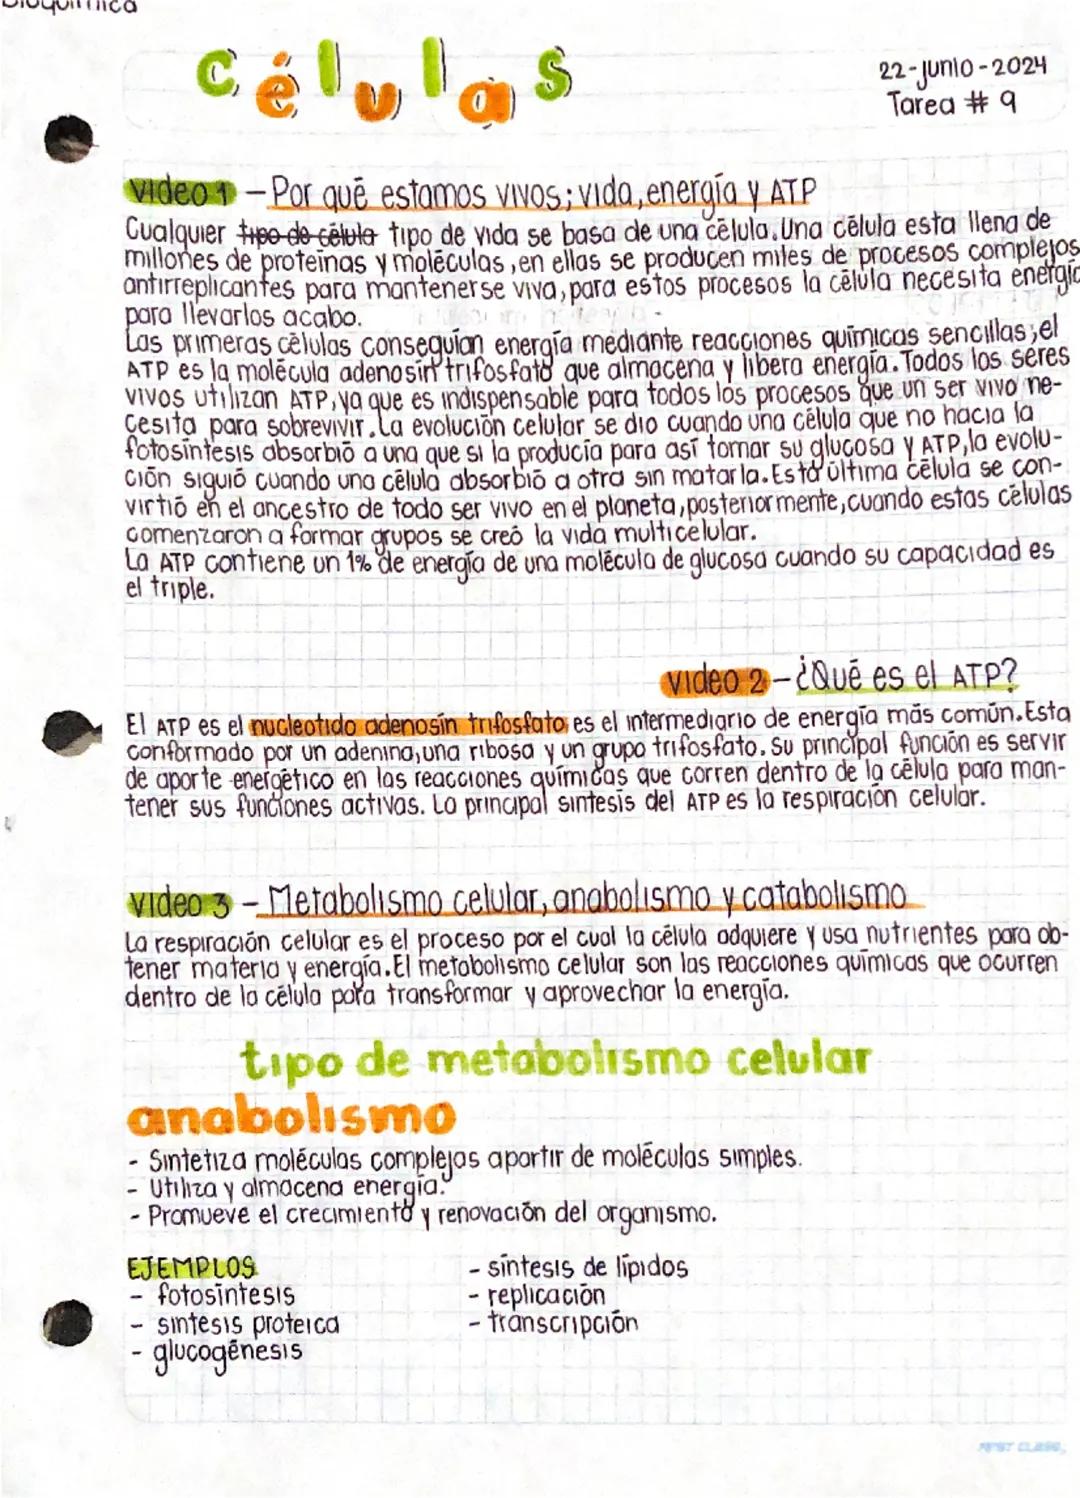 Bioquímica
Células
22-junio-2024
Tarea # 9
video 1 - Por qué estamos vivos; vida, energía y ATP
Cualquier tipo de célula tipo de vida se basa de una célula. Una célula esta llena de
millones de proteínas y moléculas, en ellas se producen miles de procesos complejos
antirreplicantes para mantenerse viva, para estos procesos la célula necesita energía
para llevarlos acabo.
Las primeras células conseguían energía mediante reacciones químicas sencillas; el
ATP es la molécula adenosín trifosfato que almacena y libera energía. Todos los seres
vivos utilizan ATP, ya que es indispensable para todos los procesos que un ser vivo ne-
cesita para sobrevivir. La evolución celular se dio cuando una célula que no hacia la
fotosíntesis absorbió a una que si la producía para así tomar su glucosa y ATP, la evolu-
ción siguió cuando una célula absorbió a otra sin matarla. Esta última célula se con-
virtió en el ancestro de todo ser vivo en el planeta, posteriormente, cuando estas células
comenzaron a formar grupos se creó la vida multicelular.
La ATP contiene un 1% de energía de una molécula de glucosa cuando su capacidad es
el triple.
video 2 - ¿Qué es el ATP?
El ATP es el nucleotido adenosín trifosfato, es el intermediario de energía más común. Esta
conformado por un adenina, una ribosa y un grupo trifosfato. Su principal función es servir
de aporte energético en las reacciones químicas que corren dentro de la célula para man-
tener sus funciones activas. La principal sintesis del ATP es la respiración celular.
video 3 - Metabolismo celular, anabolismo y catabolismo
La respiración celular es el proceso por el cual la célula adquiere y usa nutrientes para ob-
tener materia y energía. El metabolismo celular son las reacciones químicas que ocurren
dentro de la célula para transformar y aprovechar la energía.
tipo de metabolismo celular
anabolismo
- Sintetiza moléculas complejas apartir de moléculas simples.
- Utiliza y almacena energía.
- Promueve el crecimiento y renovación del organismo.
EJEMPLOS
- fotosíntesis
- sintesis proteica
- glucogénesis
- síntesis de lípidos
- replicación
- transcripción
FIRST CLASS